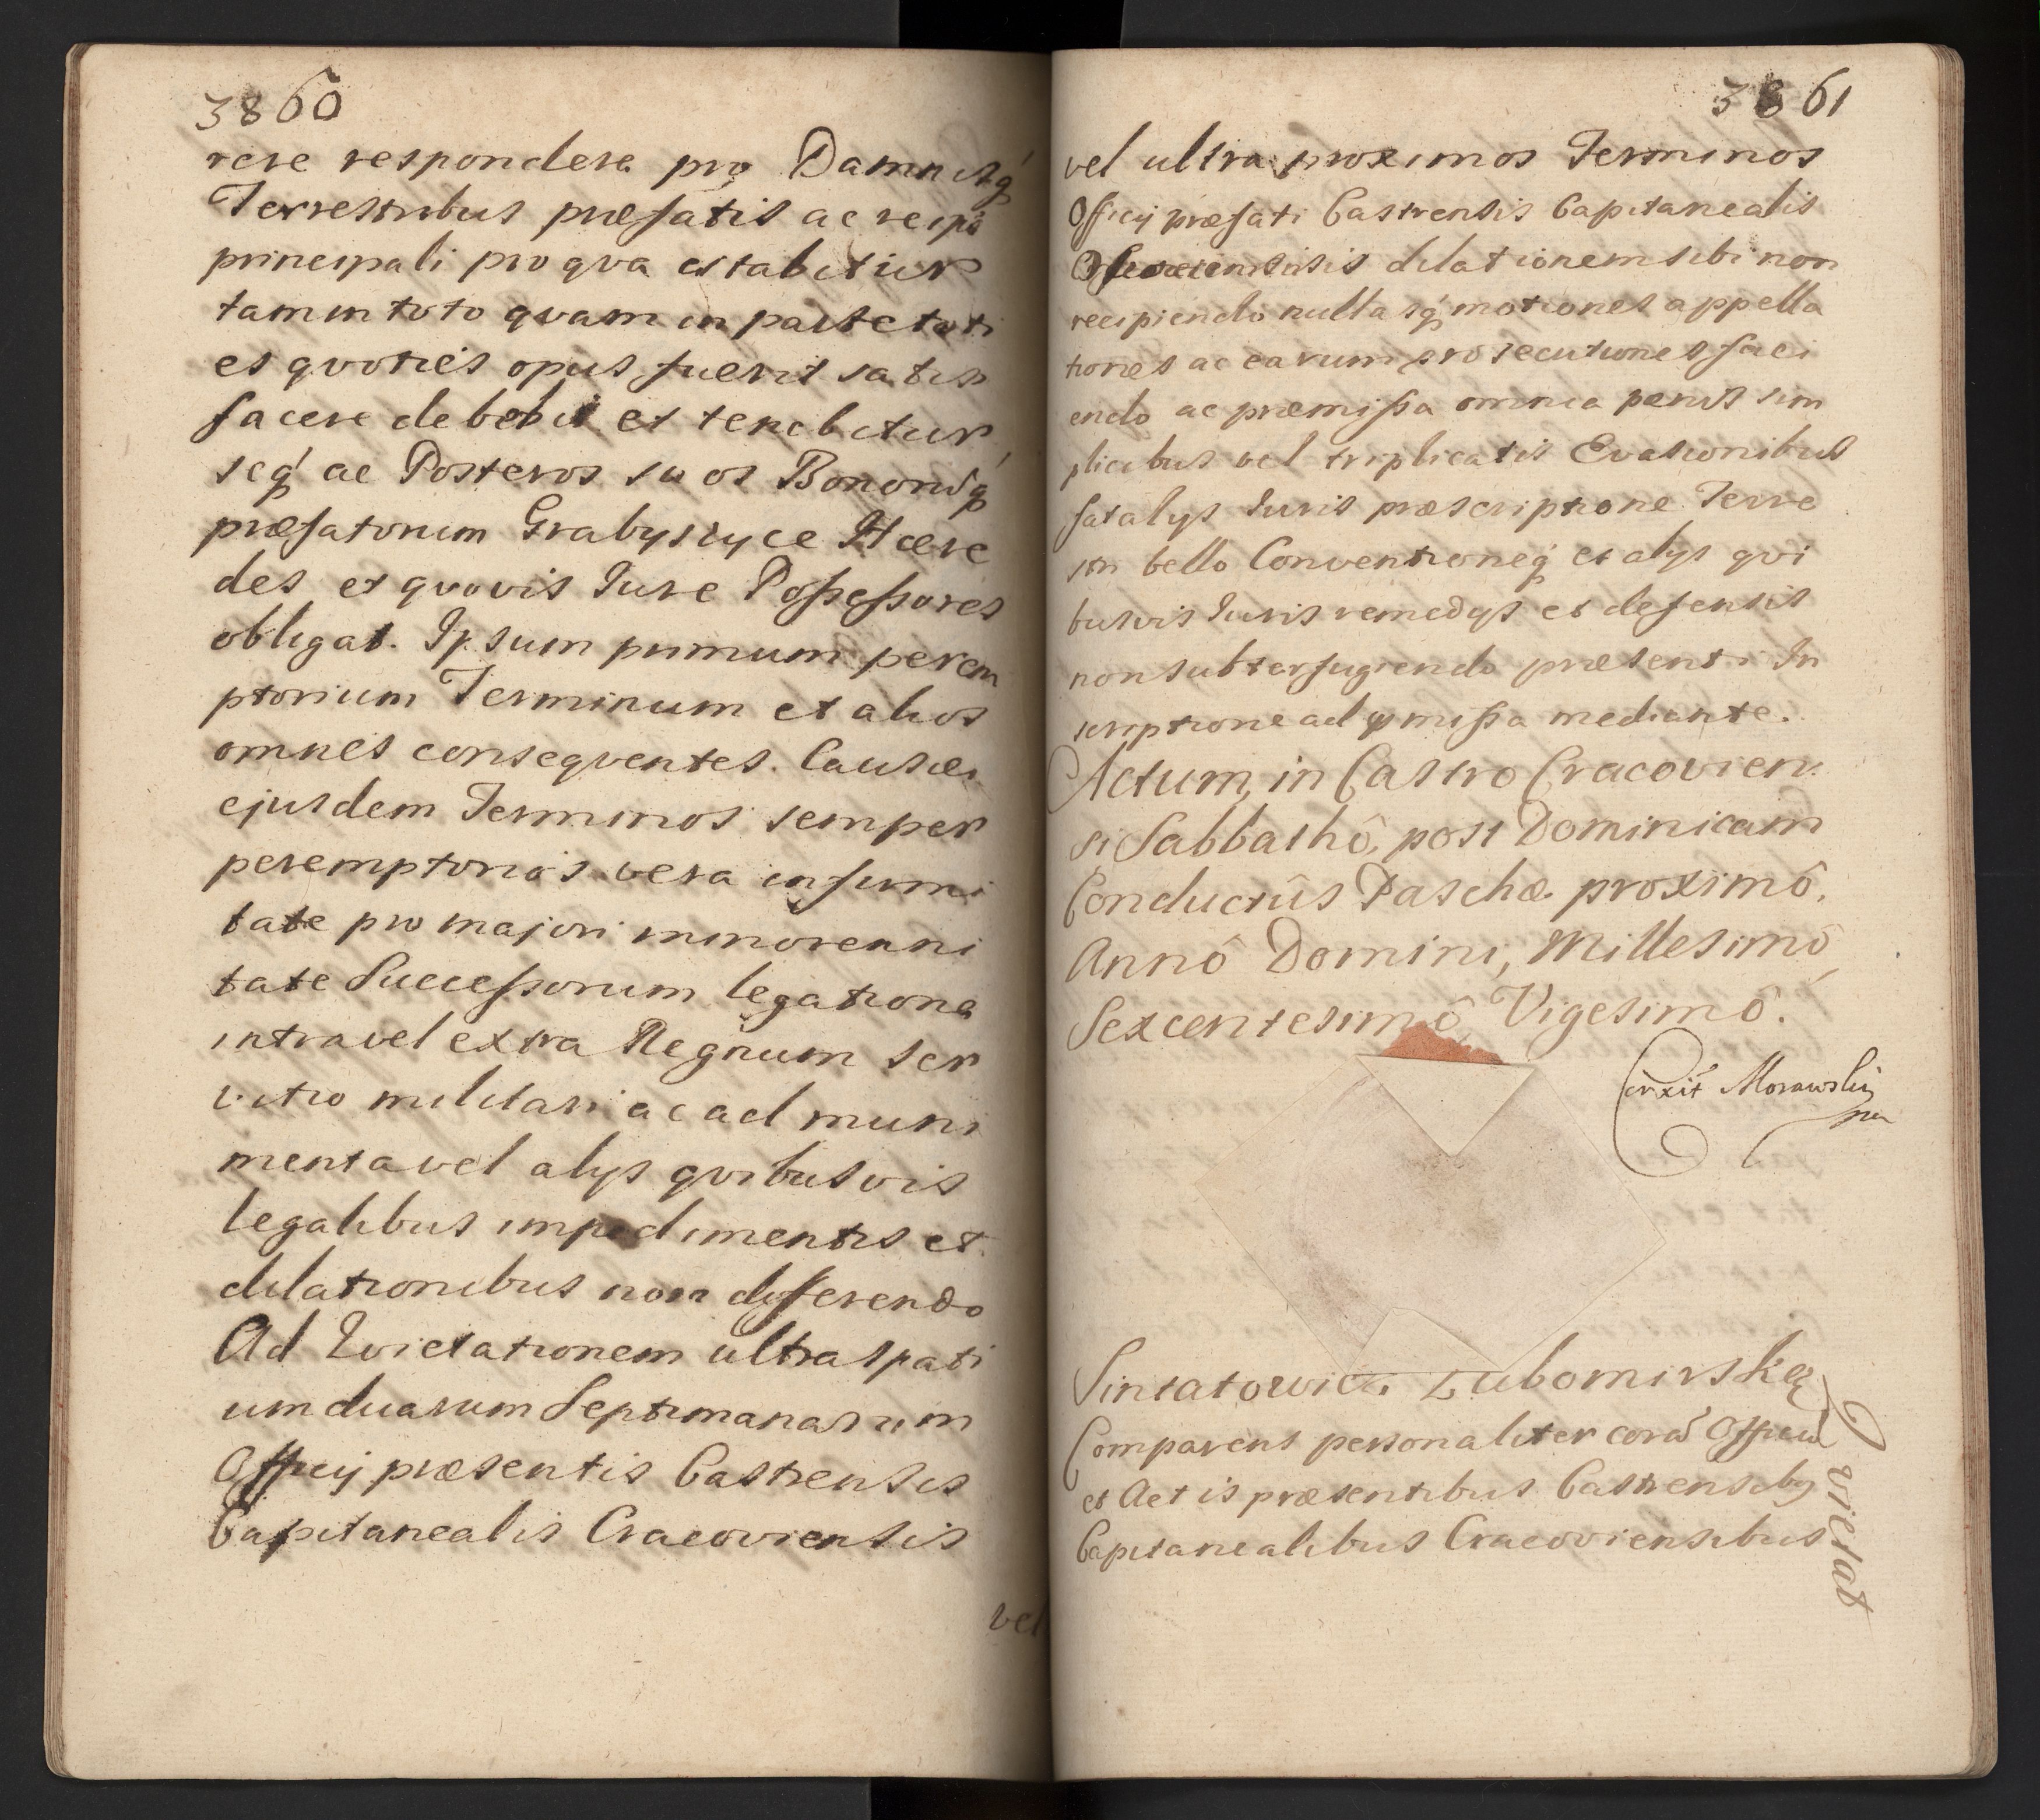 3860
rere respondere pro Damnisq́
Terrestribus præfatis ac re ipâ
principali pro qva astabitur
tam in toto qvam in parte toti
es qvoties opus fuerit satis
facere debebit et tenebitur
seq́ ac Posteros suos Bonorúq́
præfatorum Grabyszyce Hære
des et qvovis Iure Poßeßores
obligat. Ipsum primum perem
ptorium Terminum et alios
omnes conseqventes. Causæ
ejusdem Terminos semper
peremptorios vera infirmi
tate pro majori minorenni
tate Succeßorum legatione
intra vel extra Regnum ser
vitio militari ac ad muni
menta vel alys qvibusvis
legalibus impedimentis et
dilationibus non differendo
Ad Qvietationem ultra spati
um duarum Septimanarum
Officij præsentis Castrensis
Capitanealis Cracoviensis
vel
3861
vel ultra proximos Terminos
Officij præfati Castrensis Capitanealis
dilationem sibi non
recipiendo nullasq́ motiones appella
tiones ac earum prosecutiones faci
endo ac præmißa omnia pænis sim
plicibus vel triplicatis Evasionibus
fatalys Iuris præscriptione Terre
stri bello Conventioneq́ et alys qvi
busvis Iuris remedys et defensis
non subterfugiendo præsenti In
scriptione ad p̃mißa mediante.
Actum, in Castro Cracovien
si Sabbathô, post Dominicam
Conductûs Paschæ proximô,
Annô Domini, Millesimô,
Sexcentesimô Vigesimô.
Corrxit Morawskj
mp
Siratowicz Lubomirskĕ
Comparens personaliter corã Officio
et Actis præsentibus Castrensiby
Capitanealibus Cracoviensibus
Qvietat